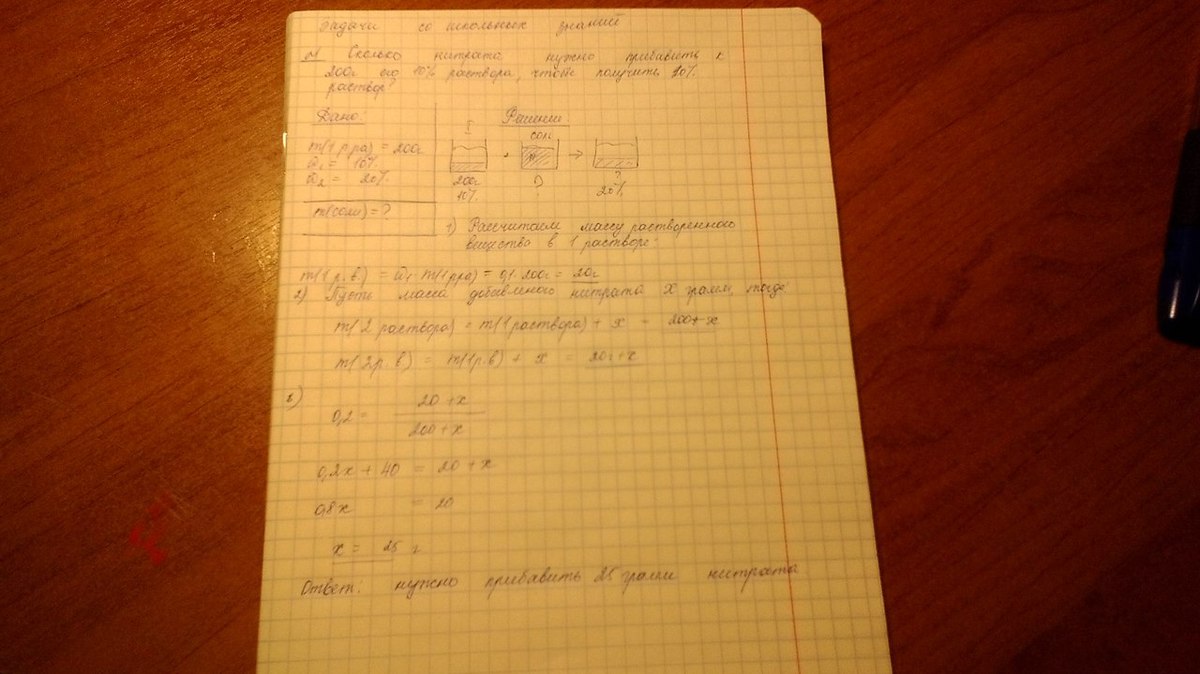 Задачи со школьных знаний
Сколько нитрата нужно прибавить к
200г его 10% раствора, чтобы получить 20%
раствор?
Дано:
m(1 р.ра) = 200г
ω₁ = 10%
ω₂ = 20%
m(соли) = ?
Решение
I
соли
+ →
200г ? ?
10% 20%
1) Рассчитаем массу растворенного
вещества в 1 растворе:
m(1р.в) = ω₁ · m(1рра) = 0,1 · 200г = 20г
2) Пусть масса добавленого нитрата X грамм, тогда:
m(2 раствора) = m(1раствора) + x = 200+x
m(2р.в) = m(1р.в) + x = 20г+x
3)
0,2 = 20+x
200+x
0,2x + 40 = 20 + x
0,8x = 20
x = 25 г
Ответ: нужно прибавить 25 грамм нитрата